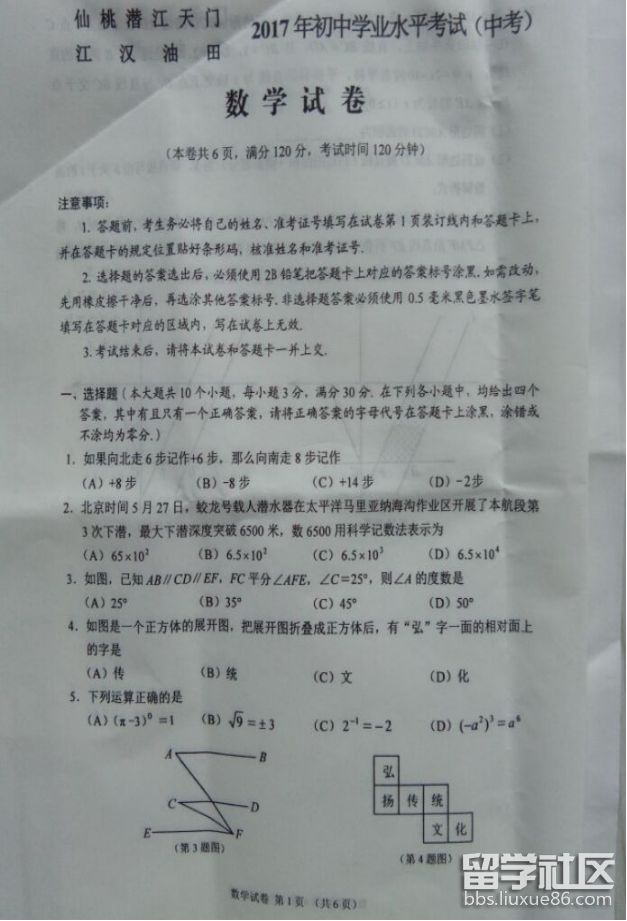 仙桃潜江天门
江 汉 油 田
2017年初中学业水平考试（中考）
数学试卷
（本卷共6页，满分120分，考试时间120分钟）
注意事项：
1. 答题前，考生务必将自己的姓名、准考证号填写在试卷第1页装订线内和答题卡上，
并在答题卡的规定位置贴好条形码，核准姓名和准考证号.
2. 选择题的答案选出后，必须使用2B铅笔把答题卡上对应的答案标号涂黑.如需改动，
先用橡皮擦干净后，再选涂其他答案标号.非选择题答案必须使用0.5毫米黑色墨水签字笔
填写在答题卡对应的区域内，写在试卷上无效.
3.考试结束后，请将本试卷和答题卡一并上交.
一、选择题（本大题共10个小题，每小题3分，满分30分. 在下列各小题中，均给出四个
答案，其中有且只有一个正确答案，请将正确答案的字母代号在答题卡上涂黑，涂错或
不涂均为零分.）
1. 如果向北走6步记作+6步，那么向南走8步记作
（A）+8步 （B）-8步 （C）+14步 （D）-2步
2. 北京时间5月27日，蛟龙号载人潜水器在太平洋马里亚纳海沟作业区开展了本航段第
3次下潜，最大下潜深度突破6500米，数6500用科学记数法表示为
（A）65×10² （B）6.5×10² （C）6.5×10³ （D）6.5×10⁴
3. 如图，已知AB∥CD∥EF，FC平分∠AFE，∠C=25°，则∠A的度数是
（A）25° （B）35° （C）45° （D）50°
4. 如图是一个正方体的展开图，把展开图折叠成正方体后，有“弘”字一面的相对面上
的字是
（A）传 （B）统 （C）文 （D）化
5. 下列运算正确的是
（A）(π-3)⁰=1 （B）√9=±3 （C）2⁻¹=-2 （D）(-a²)³=a⁶
A B
C D
E F
（第3题图）
弘
扬 传 统
文 化
（第4题图）
数学试卷 第1页 （共6页）
留学社区
bbs.liuxue86.com